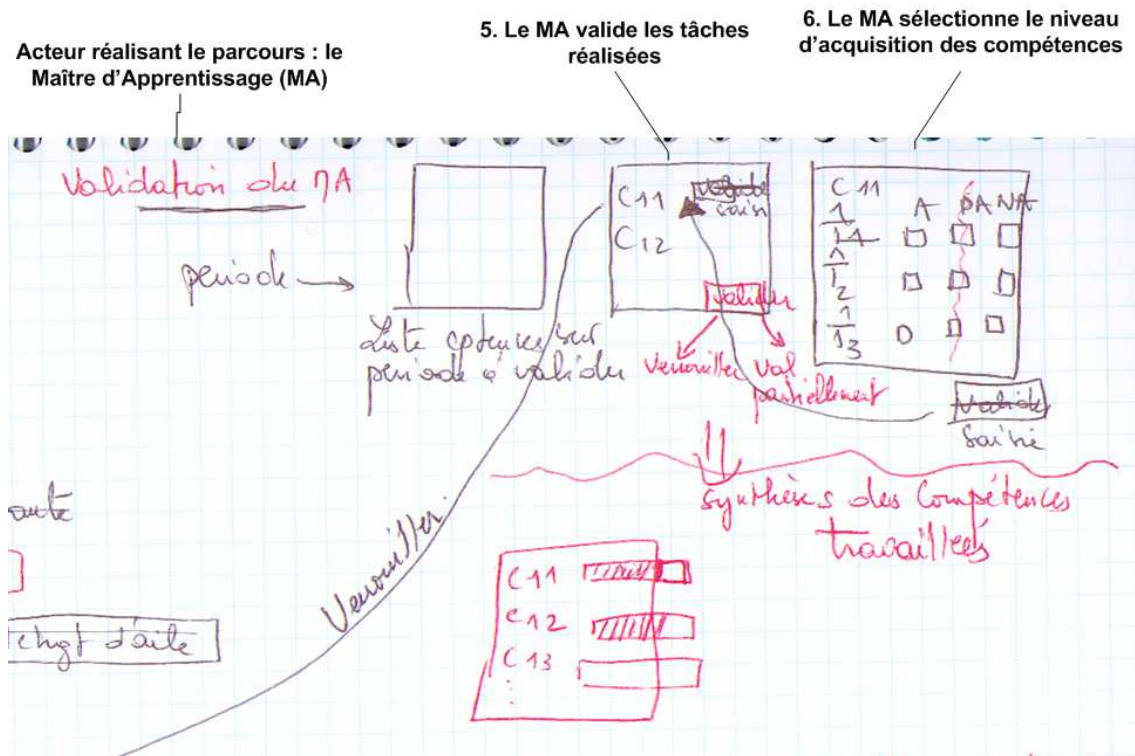 Acteur réalisant le parcours : le
Maître d'Apprentissage (MA)
5. Le MA valide les tâches
réalisées
6. Le MA sélectionne le niveau
d'acquisition des compétences
Validation du MA
période →
Liste cptences sur
période à valider
C11
saisi
C12
valider
Verrouiller
Val
partiellement
C11
A PA NA
1
11
1
12
1
13
Valide
Saisie
Synthèses des Compétences
travaillées
Verrouiller
chgt d'aite
C11
C12
C13